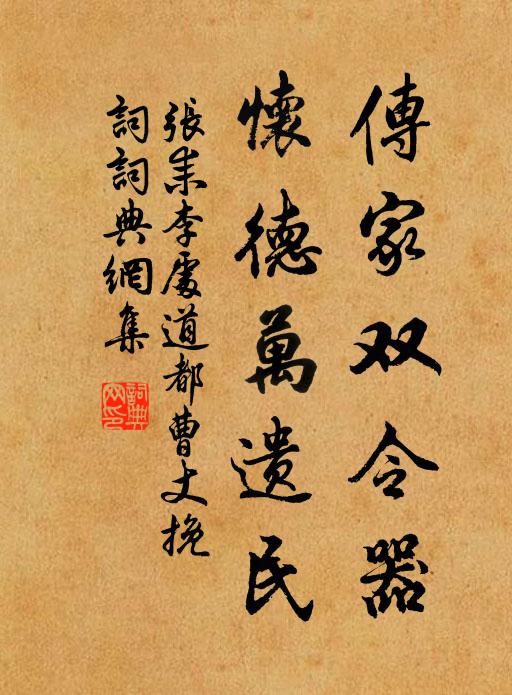 傳家双令器
懷德萬遗民
張耒李處道都曹丈挽
詞詞典網集
詞典網印